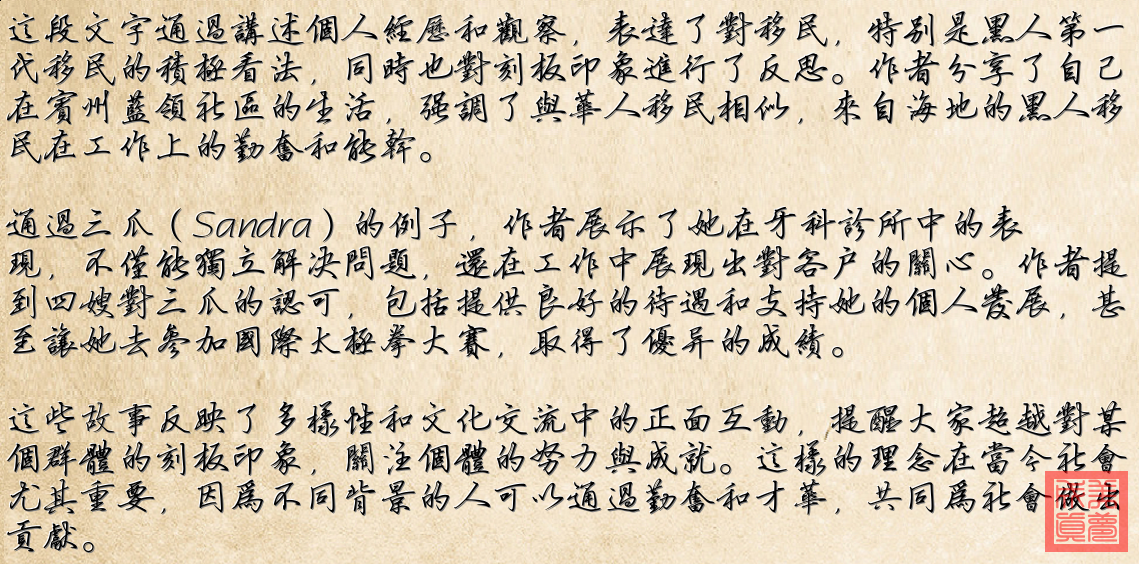 這段文字通過講述個人經歷和觀察，表達了對移民，特別是黑人第一
代移民的積極看法，同時也對刻板印象進行了反思。作者分享了自己
在賓州藍領社區的生活，强調了與華人移民相似，來自海地的黑人移
民在工作上的勤奮和能幹。
通過三爪（Sandra）的例子，作者展示了她在牙科診所中的表
現，不僅能獨立解决問題，還在工作中展現出對客户的關心。作者提
到四嫂對三爪的認可，包括提供良好的待遇和支持她的個人發展，甚
至讓她去參加國際太極拳大賽，取得了優异的成績。
這些故事反映了多樣性和文化交流中的正面互動，提醒大家超越對某
個群體的刻板印象，關注個體的努力與成就。這樣的理念在當今社會
尤其重要，因爲不同背景的人可以通過勤奮和才華，共同爲社會做出
貢獻。